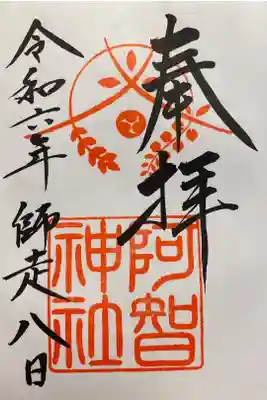 奉拝
阿智
神社
令和六年 師走八日